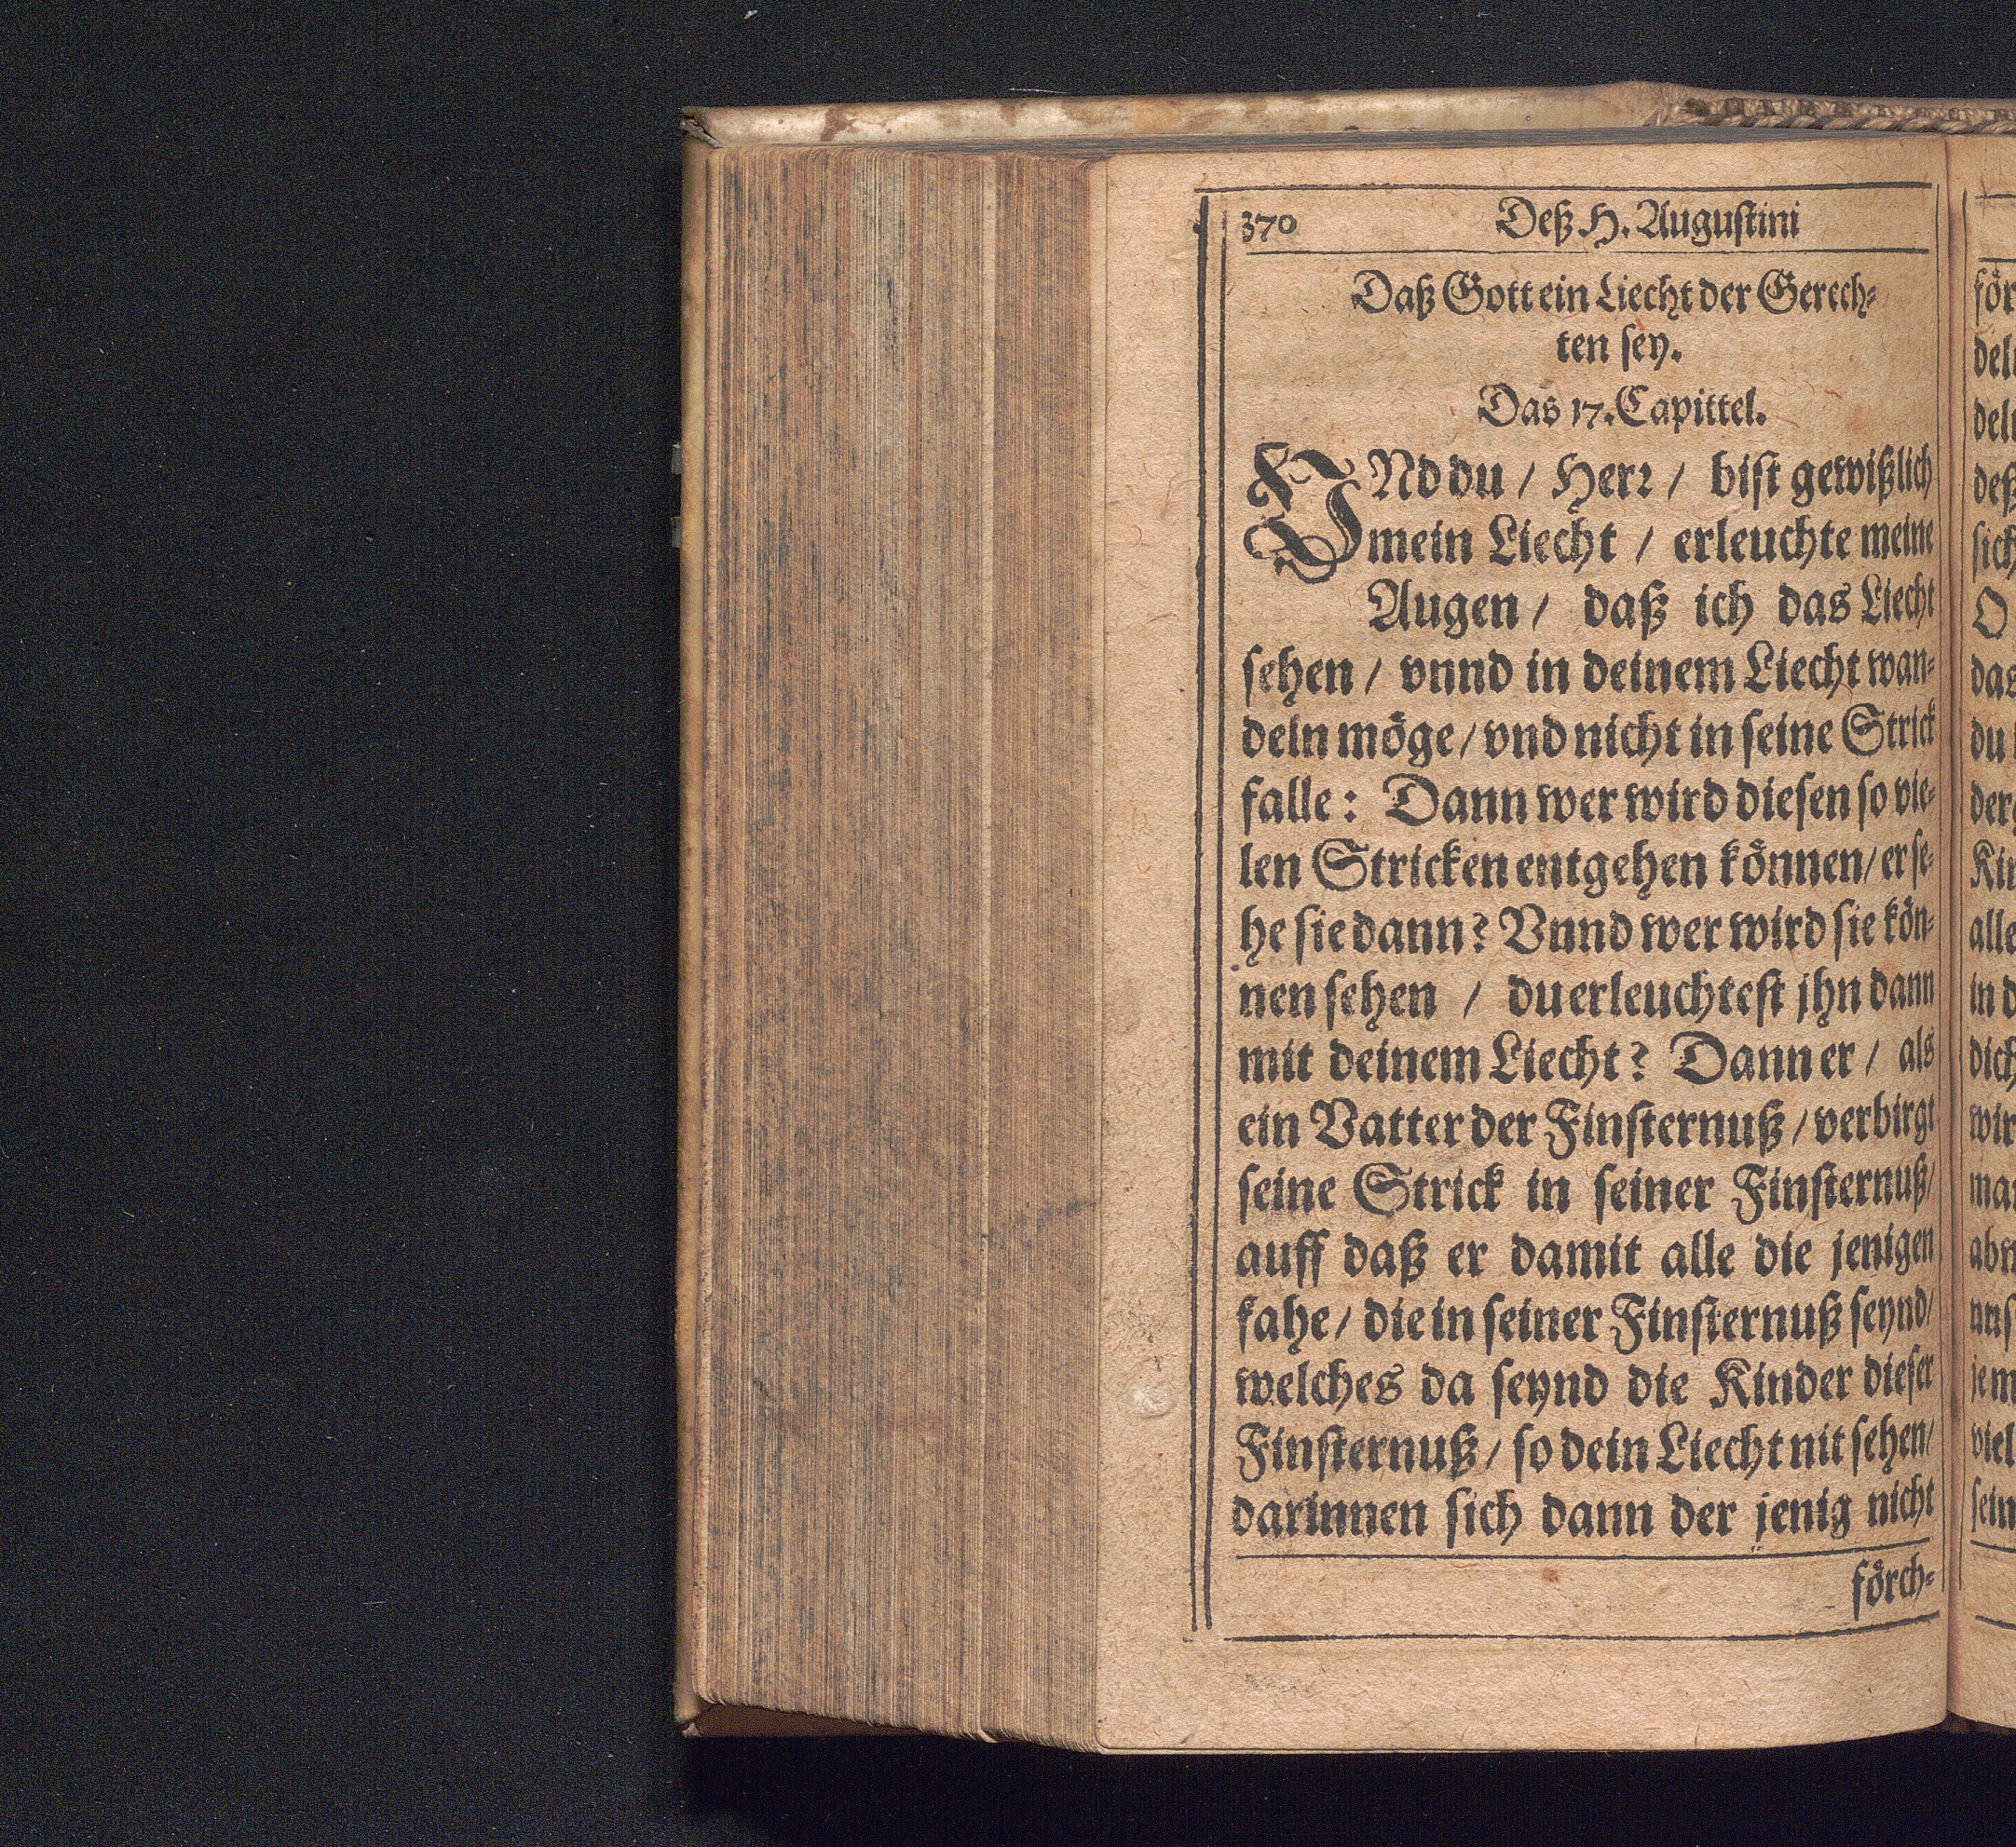 370 Deß H. Augustini
Daß Gott ein Liecht der Gerech-
ten sey.
Das 17. Capittel.
VNd du / Herr / bist gewißlich
mein Liecht / erleuchte meine
Augen / daß ich das Liecht
sehen / vnnd in deinem Liecht wan-
deln möge / vnd nicht in seine Strick
falle: Dann wer wird diesen so vie-
len Stricken entgehen können / er se-
he sie dann? Vnnd wer wird sie kön-
nen sehen / du erleuchtest jhn dann
mit deinem Liecht? Dann er / als
ein Vatter der Finsternuß / verbirgt
seine Strick in seiner Finsternuß /
auff daß er damit alle die jenigen
fahe / die in seiner Finsternuß seynd /
welches da seynd die Kinder dieser
Finsternuß / so dein Liecht nit sehen /
darinnen sich dann der jenig nicht
förch-